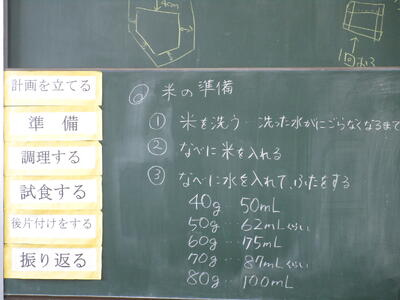 4cm
1回おる
計画を立てる
準備
調理する
試食する
後片付けをする
振り返る
◎ 米の準備
① 米を洗う…洗った水がにごらなくなるまで
② なべに米を入れる
③ なべに水を入れて、ふたをする
40g…50mL
50g…62mLくらい
60g…75mL
70g…87mLくらい
80g…100mL